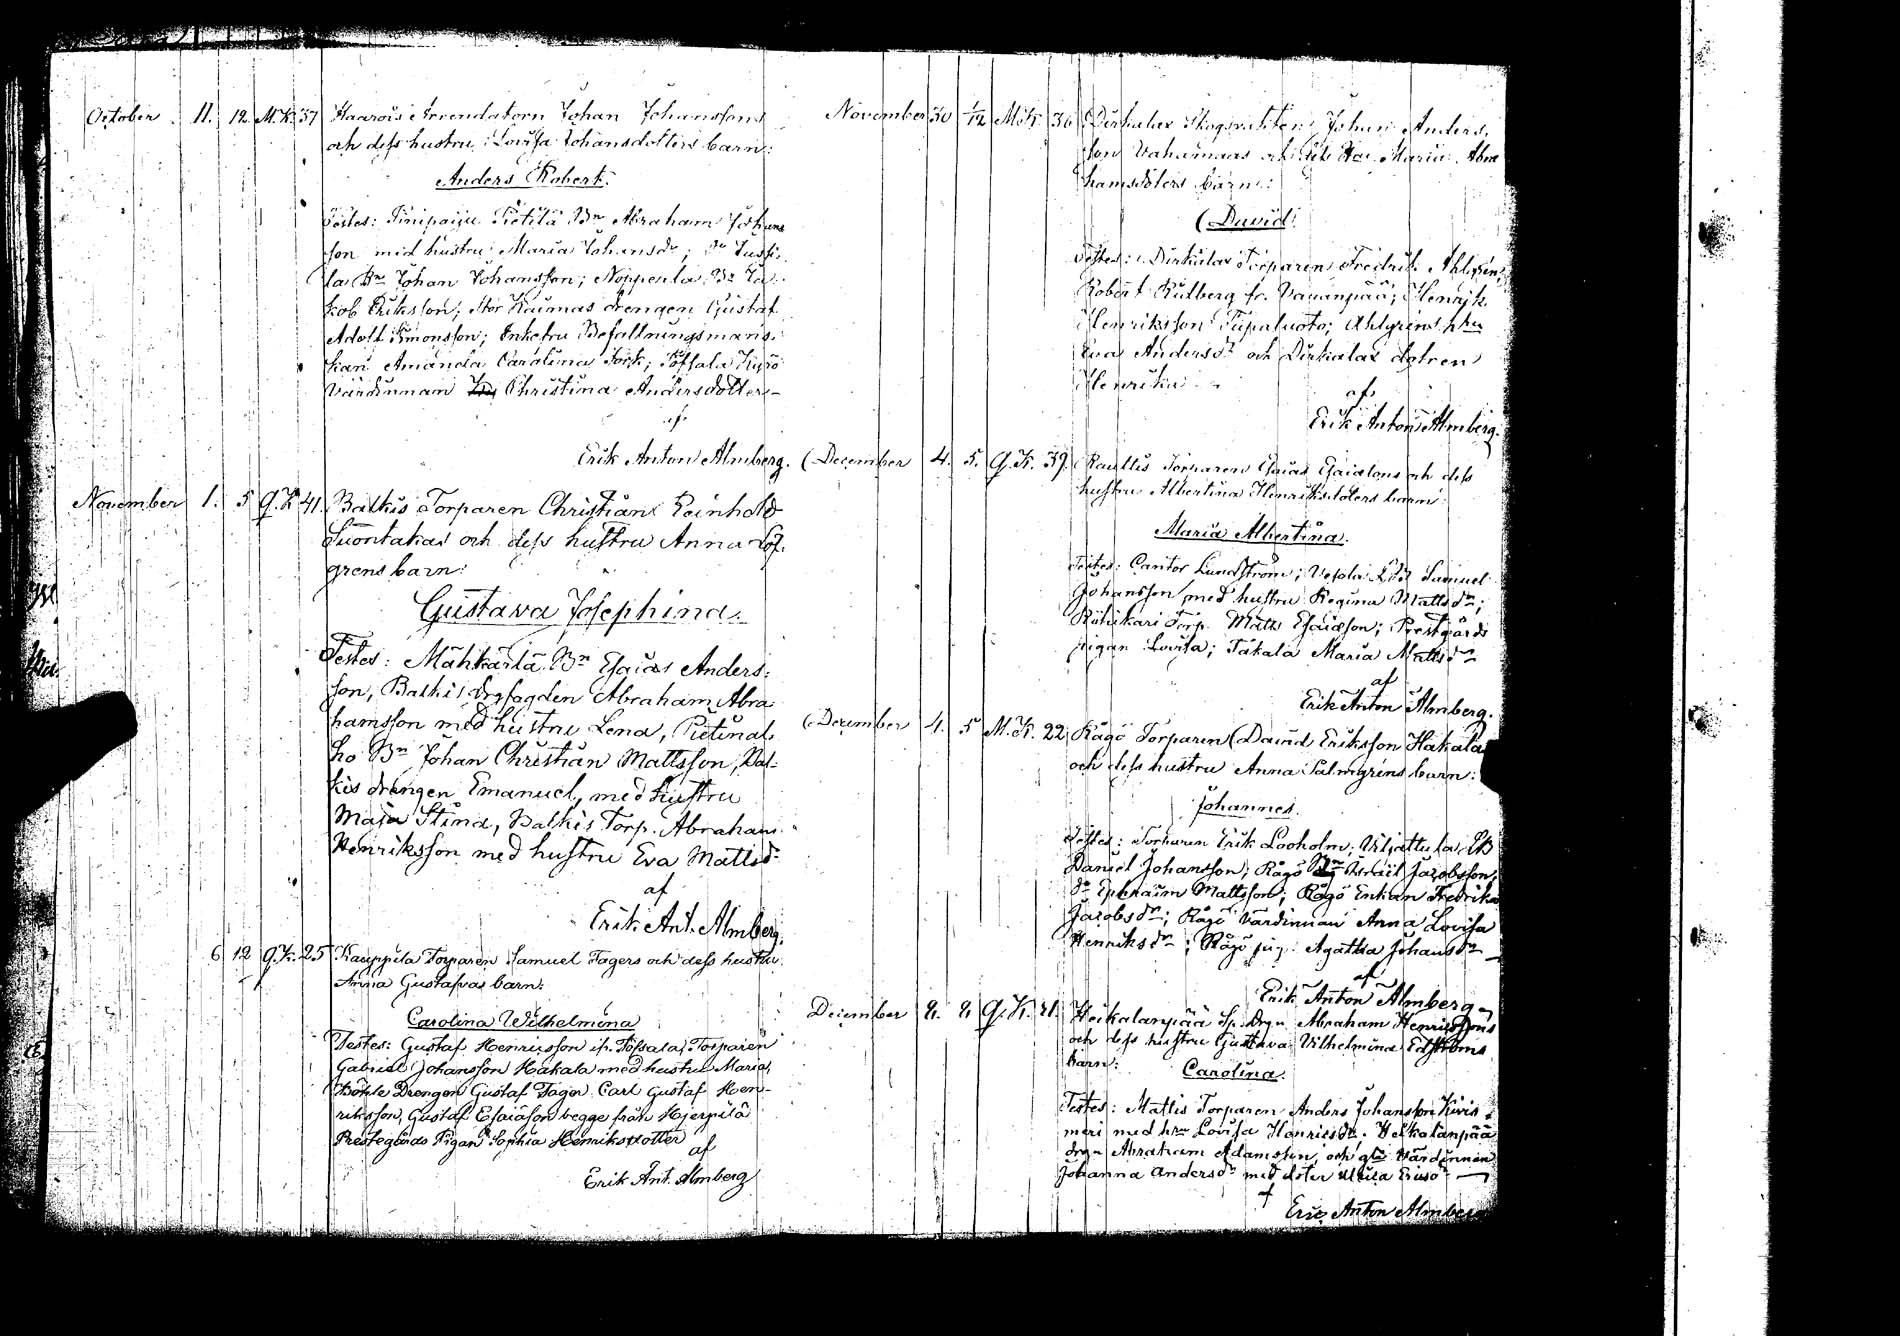 October 11. 12 M.K. 37 Haarois Arrendatorn Johan Johanssons
och dess hustru Lovisa Johansdotters barn:
Anders Robert.
Testes: Pietilä Bn Abraham Johans
son med hustru Maria Johansdr; Dn Jussi
la Bn Johan Johansson; Noppenla Bn Ja
kob Eriksson; Stor Raumas drengen Gustaf
Adolf Simonsson; Enkefru Befallningsmans
kan Amanda Carolina; Töfsala Kyrö
värdinnan Christina Andersdotter
af
Erik Anton Almberg.
November 1. 5 Q.K 41. Balkis Torparen Christian Reinhold
Suontakas och dess hustru Anna Löf
grens barn:
Gustava Josephina.
Testes: Mähkärlä Bn Esaias Anders:
son, Balkis Abraham Abra
hamsson med hustru Lena, Pietinal
ho Bn Johan Christian Mattsson, Bal
kis drängen Emanuel, med hustru
Maja Stina, Balkis Torp. Abraham
Henriksson med hustru Eva Mattsdr
af
Erik Ant. Almberg.
6 12 Q.K. 25 Kauppila Torparen Samuel Fagers och dess hustru
Anna Gustafvas barn:
Carolina Wilhelmina
Testes: Gustaf Henricsson fr. Töfsala, Torparen
Gabriel Johansson Hakala med hustru Maria,
Drengen Gustaf Fager, Carl Gustaf Hen-
riksson, Gustaf Esaiason begge från Hjerpilä
Prestegårds Pigan Sophia Henriksdotter
af
Erik Ant. Almberg
November 30 1/12 M.K 36 Dirkalax Skogsvakten Johan Anders
son Vahamaas och dess Hu Maria Abra
hamsdoters barn:
David.
Testes: Dirkalax Torparen Fredrik Ahlgren,
Robert Rutberg fr. Vananpää; Henrik
Henriksson Tiipaluoto; Ahlgrens hu
Eva Andersdr och Dirkalax dotren
Henrika
af
Erik Anton Almberg.
December 4. 5. Q.K. 39. Rauttis Torparen Esaias Esaiasons och dess
hustru Albertina Henriksdoters barn:
Maria Albertina.
Testes: Cantor Lundström; Samuel
Johansson med hustru Regina Mattsdr;
Riihikari Torp. Matts Esaiasson; Prestgårds
pigan Lovisa; Takala Maria Mattsdr
af
Erik Anton Almberg.
December 4. 5 M.K. 22 Rågö Torparen David Eriksson Hakalas
och dess hustru Anna Palmgrens barn:
Johannes.
Testes: Torparen Erik Looholm; Viljattula
Daniel Johansson; Rågö Bn Israel Jacobsson,
Dn Ephraim Mattsson; Rågö Enkan Fredrika
Jacobsdr; Rågö värdinnan Anna Lovisa
Henriksdr; Rågö pig. Agatha Johansdr
af
Erik Anton Almberg
December 9. 9 Q.K. 21. Heikalanpää Sp. Drgn Abraham Henricssons
och dess hustru Gustava Vilhelmina Edströms
barn:
Carolina.
Testes: Mattis Torparen Anders Johansson Kivi
meri med hru Lovisa Henricsdr. Heikalanpää
drgn Abraham Adamsson, och Värdinnan
Johanna Andersdr med doter Ericsdr
af
Eric Anton Almberg